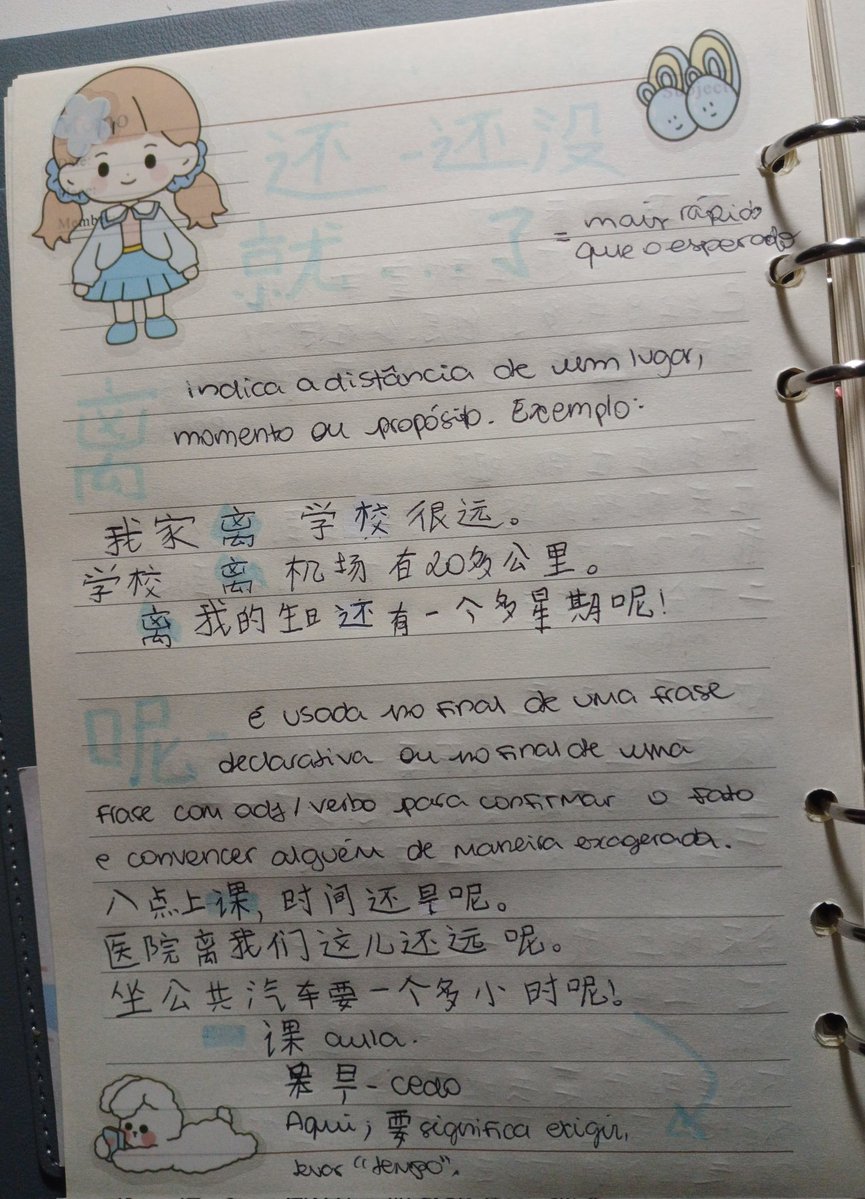 还 - 还没
就...了
= mais rápido
que o esperado
离
indica a distância de um lugar,
momento ou propósito. Exemplo:
我家离 学校很远。
学校 离 机场有20多公里。
离我的生日还有一个多星期呢!
呢- é usada no final de uma frase
declarativa ou no final de uma
frase com adj/verbo para confirmar o fato
e convencer alguém de maneira exagerada.
八点上课, 时间还早呢。
医院离我们这儿还远呢。
坐公共汽车要一个多小时呢!
课 aula.
早 - cedo
Aqui, 要 significa exigir,
levar "tempo".